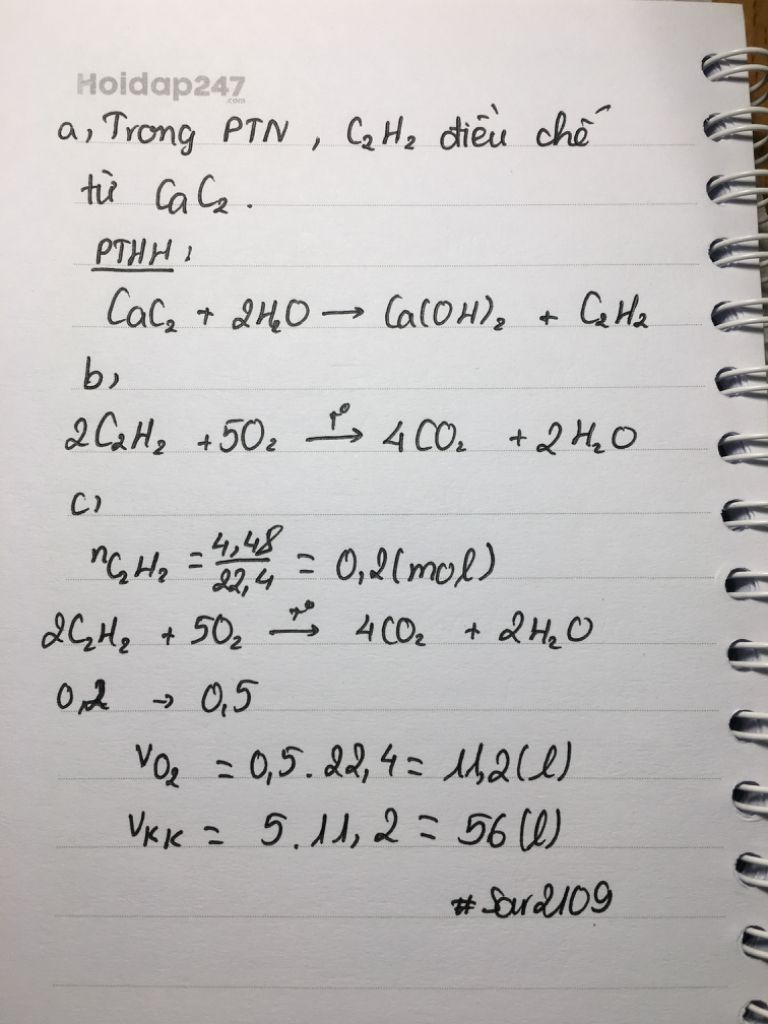 Hoidap247
.com
a, Trong PTN, C₂H₂ điều chế
từ CaC₂.
PTHH:
CaC₂ + 2H₂O → Ca(OH)₂ + C₂H₂
b,
2C₂H₂ + 5O₂ –t°→ 4CO₂ + 2H₂O
c,
nC₂H₂ = 4,48/22,4 = 0,2(mol)
2C₂H₂ + 5O₂ –t°→ 4CO₂ + 2H₂O
0,2 → 0,5
VO₂ = 0,5.22,4 = 11,2(l)
VKK = 5.11,2 = 56(l)